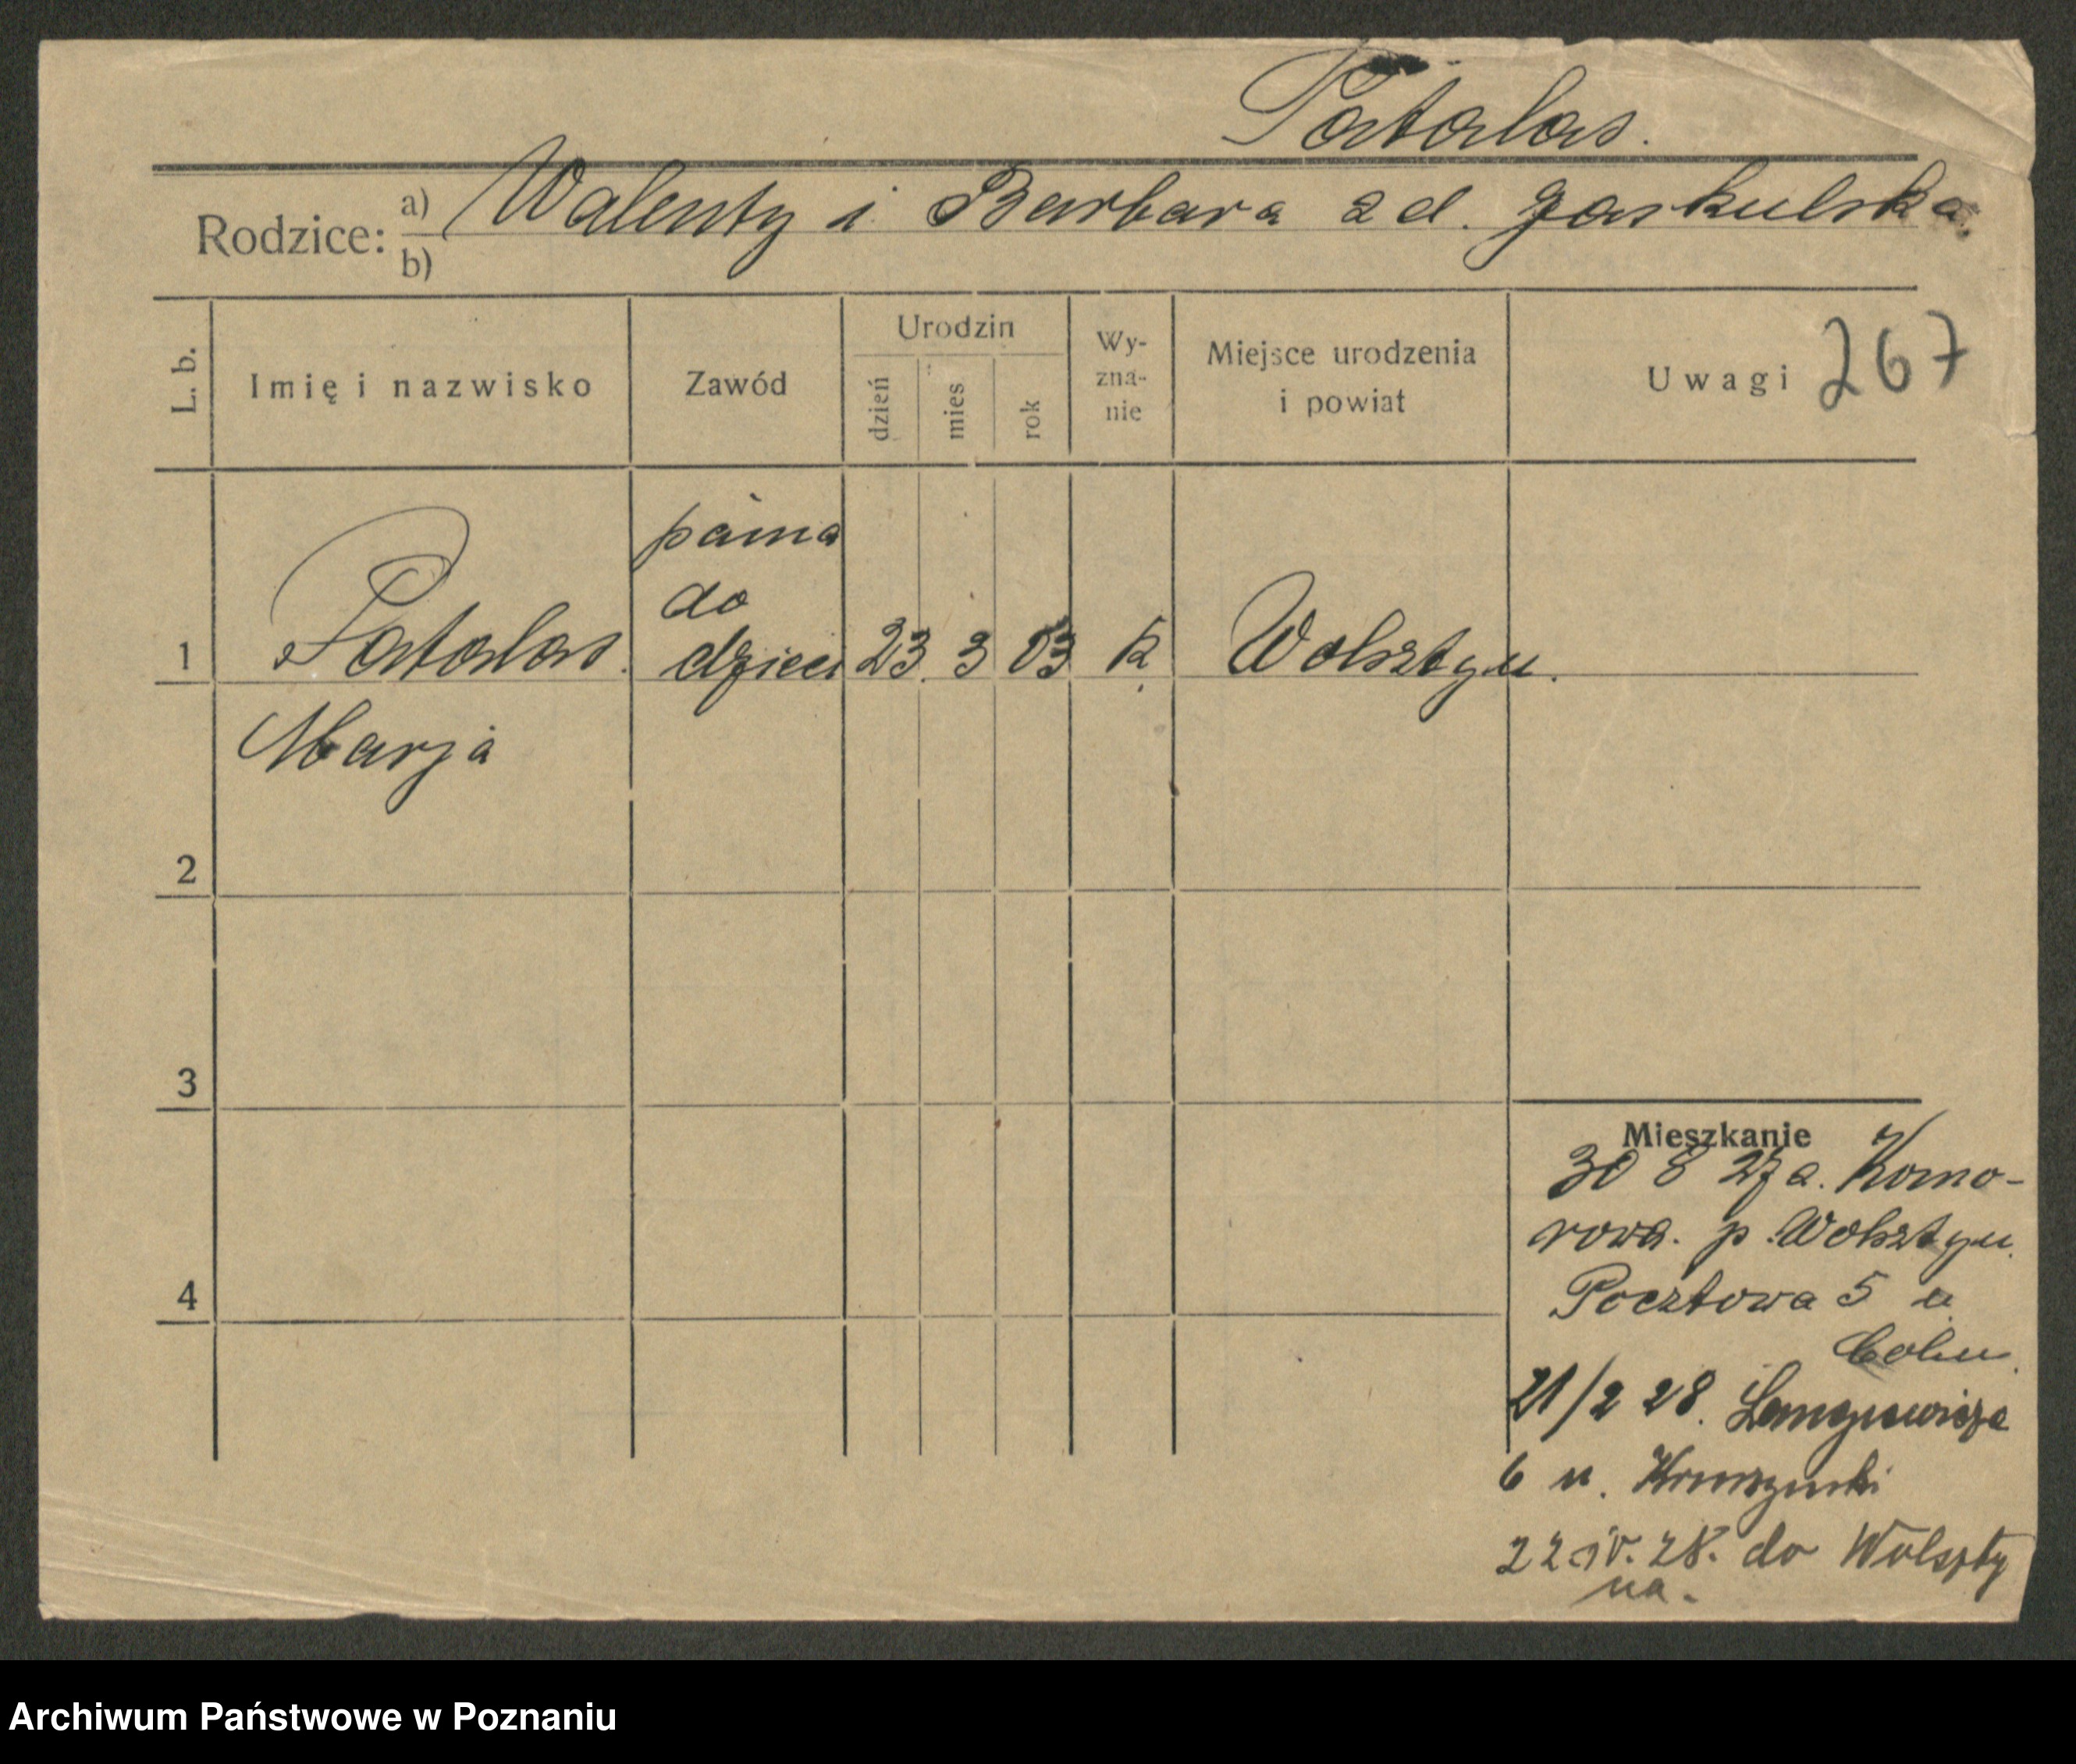 Patalas.
Rodzice: a) Walenty i Barbara zd. Jaskulska
b)
L. b.
Imię i nazwisko
Zawód
Urodzin
dzień
mies
rok
Wy-
zna-
nie
Miejsce urodzenia
i powiat
Uwagi 267
panna
do
1 Patalas. dzieci 23. 3 03 k. Wolsztyn.
Marja
2
3
Mieszkanie
30 8 27 a. Komo-
rowa. p. Wolsztyn.
4
Pocztowa 5 u
Cohn.
21/2 28. Langiewicza
6 u.
22.IV.28. do Wolszty
na.
Archiwum Państwowe w Poznaniu